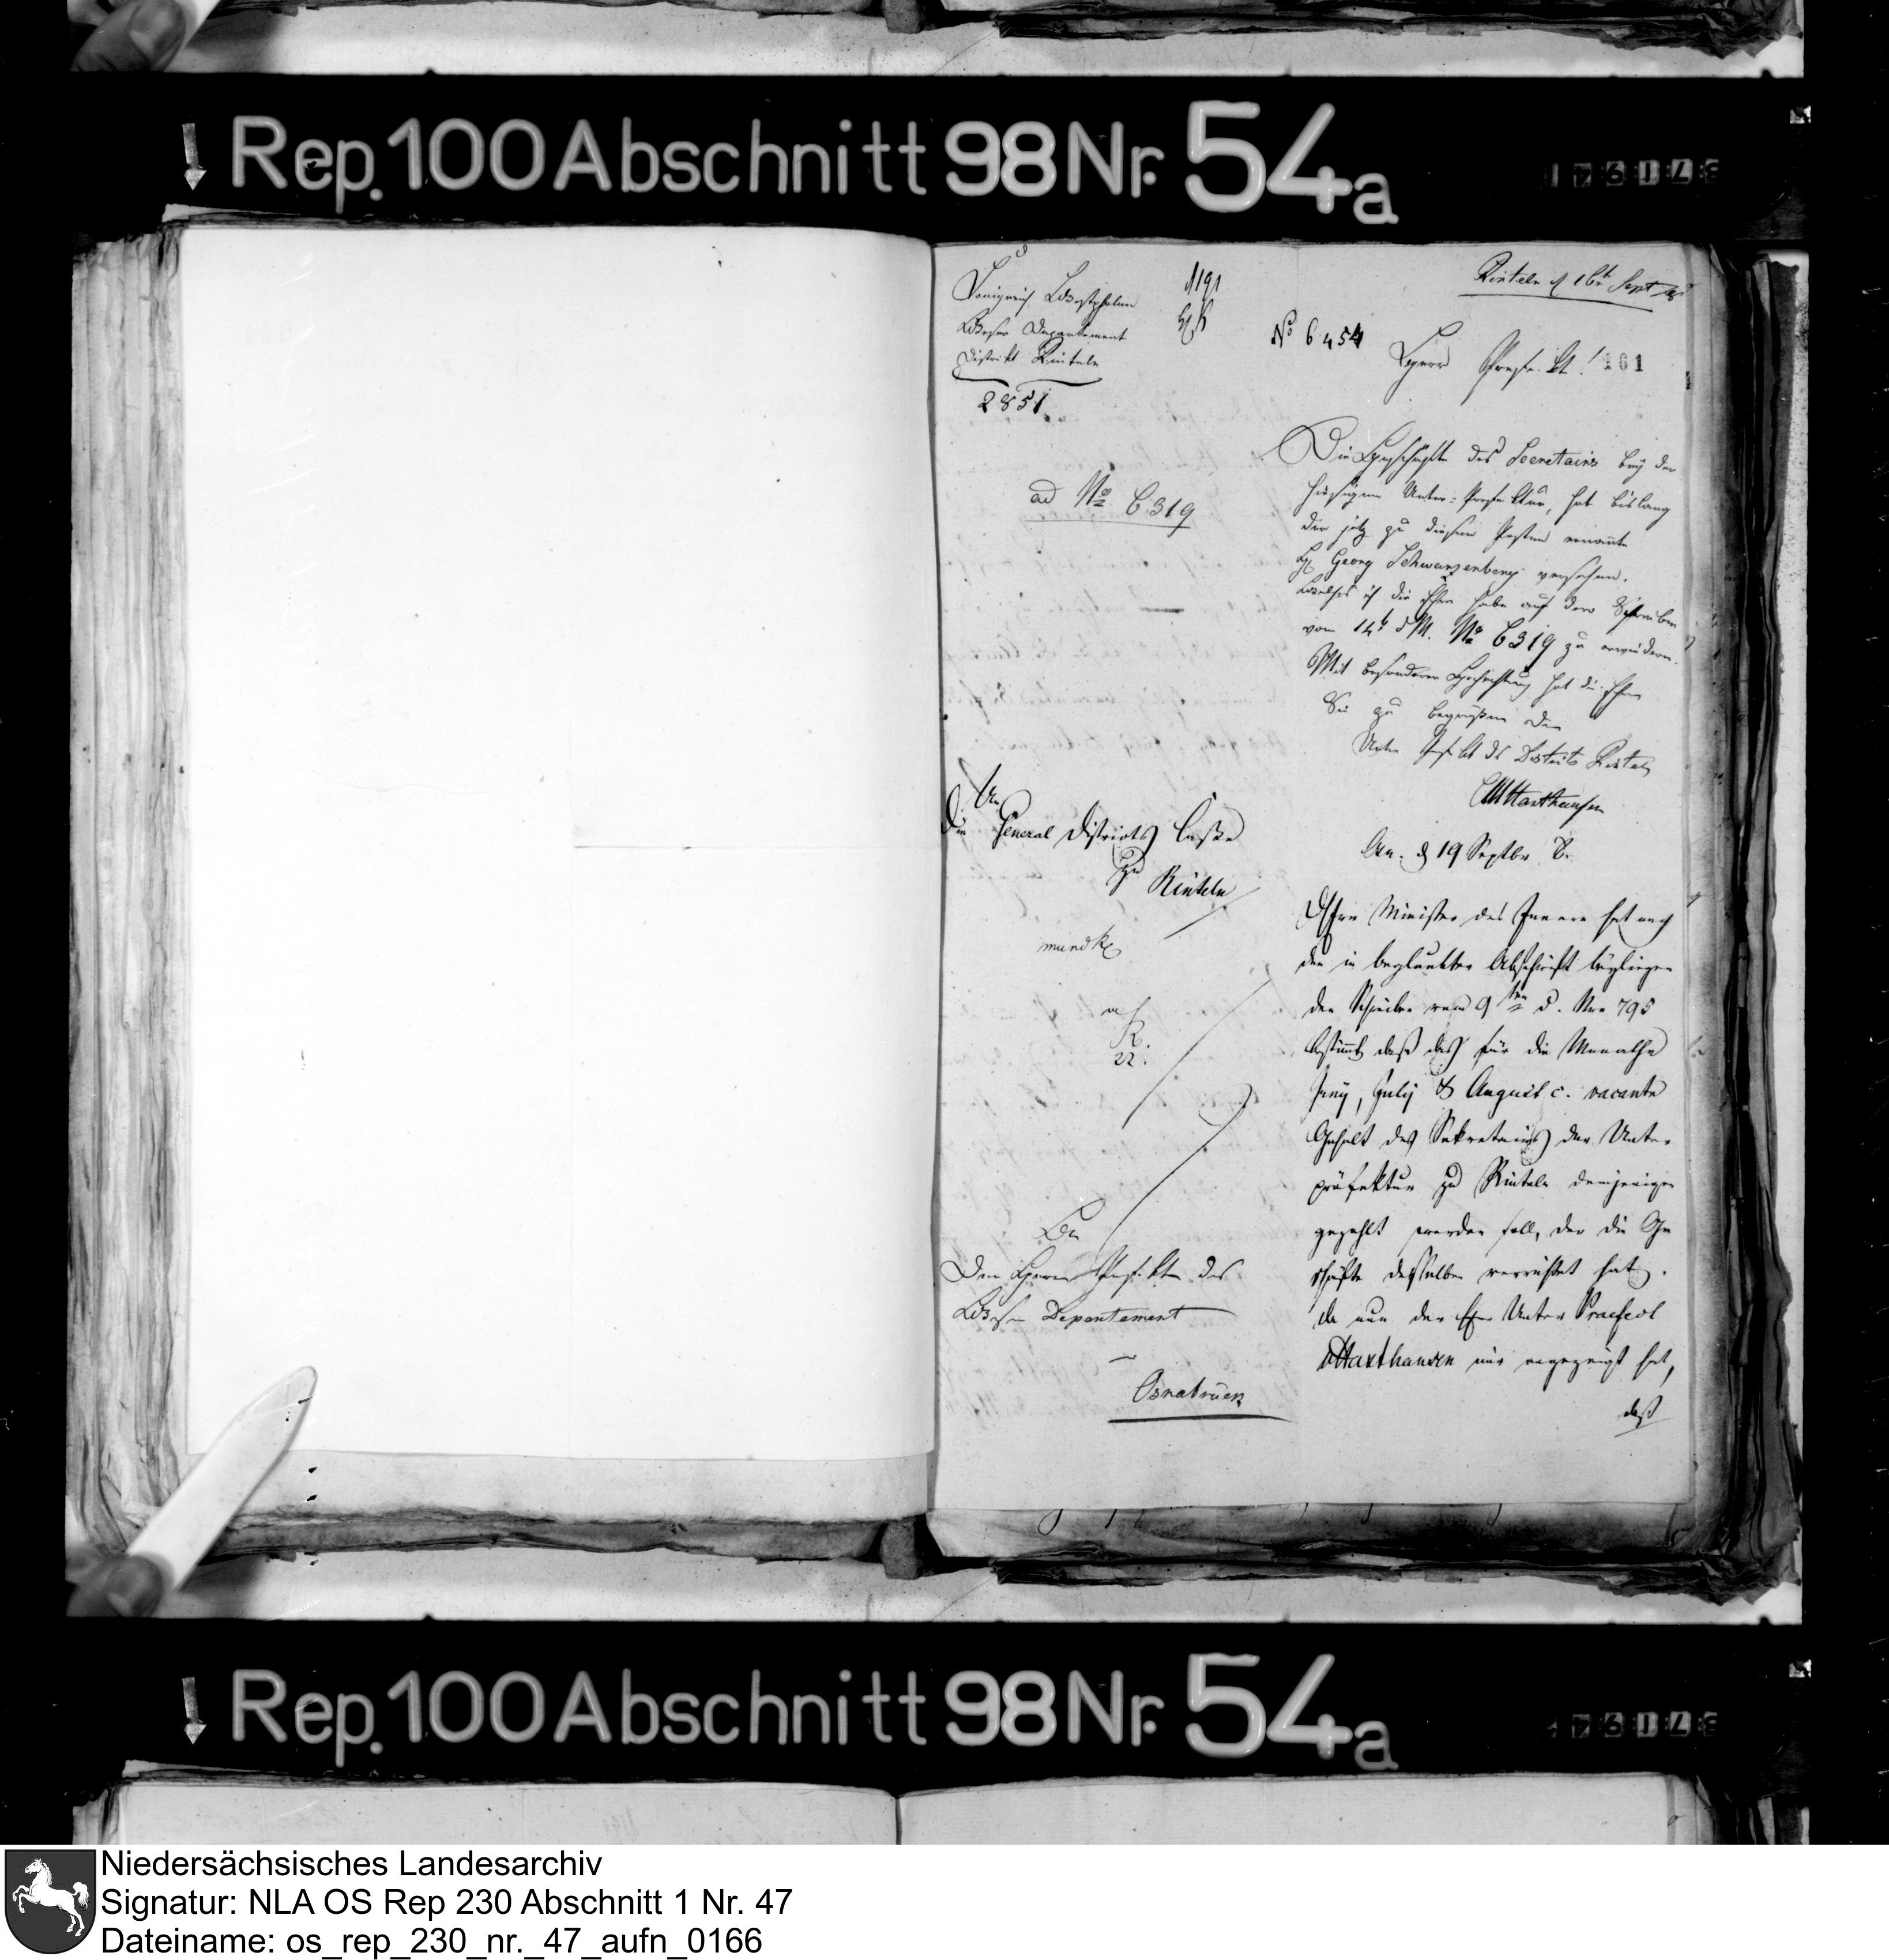 Rep. 100 Abschnitt 98 Nr. 54a
Königreich Westphalen
Weser Departement
Distrikt Rinteln
2851
1191
Rinteln d 16t Sept
No 6454
Herr Prefekt!
161
ad No 6319
Die Geschäfte des Secretairs bey der
hiesigen Unter-Prefektur, hat bislang
der jetz zu diesem Posten ernannte
H. Georg Schwarzenberg versehen.
Welches ich die Ehre habe auf dero Schreiben
vom 14t d M. No 6319 zu erwiedern.
Mit besonderer Hochachtung hat die Ehre
Sie zu begrüßen der
Unter Prefekt des Districts Rinteln
CMHaxthausen
An
Die General Districts Casse
zu Rinteln
mundt
An. d 19 Septbr 8.
Der Minister des Innern hat nach
den in beglaubter Abschrift beyliegen
den Schreiben vom 9ten d. Nro 795
bestimmt daß das für die Monathe
Juny, July & August c. vacante
Gehalt des Sekretairs der Unter
präfektur zu Rinteln demjenigen
gezahlt werden soll, der die Ge
schäfte desselben verrichtet hat.
Da nun der Herr Unter Praefect
vHaxthausen mir angezeigt hat,
daß
R.
22.
An
Den Herrn Prefekten des
Weser Departement
Osnabrück
Rep. 100 Abschnitt 98 Nr. 54a
Niedersächsisches Landesarchiv
Signatur: NLA OS Rep 230 Abschnitt 1 Nr. 47
Dateiname: os_rep_230_nr._47_aufn_0166